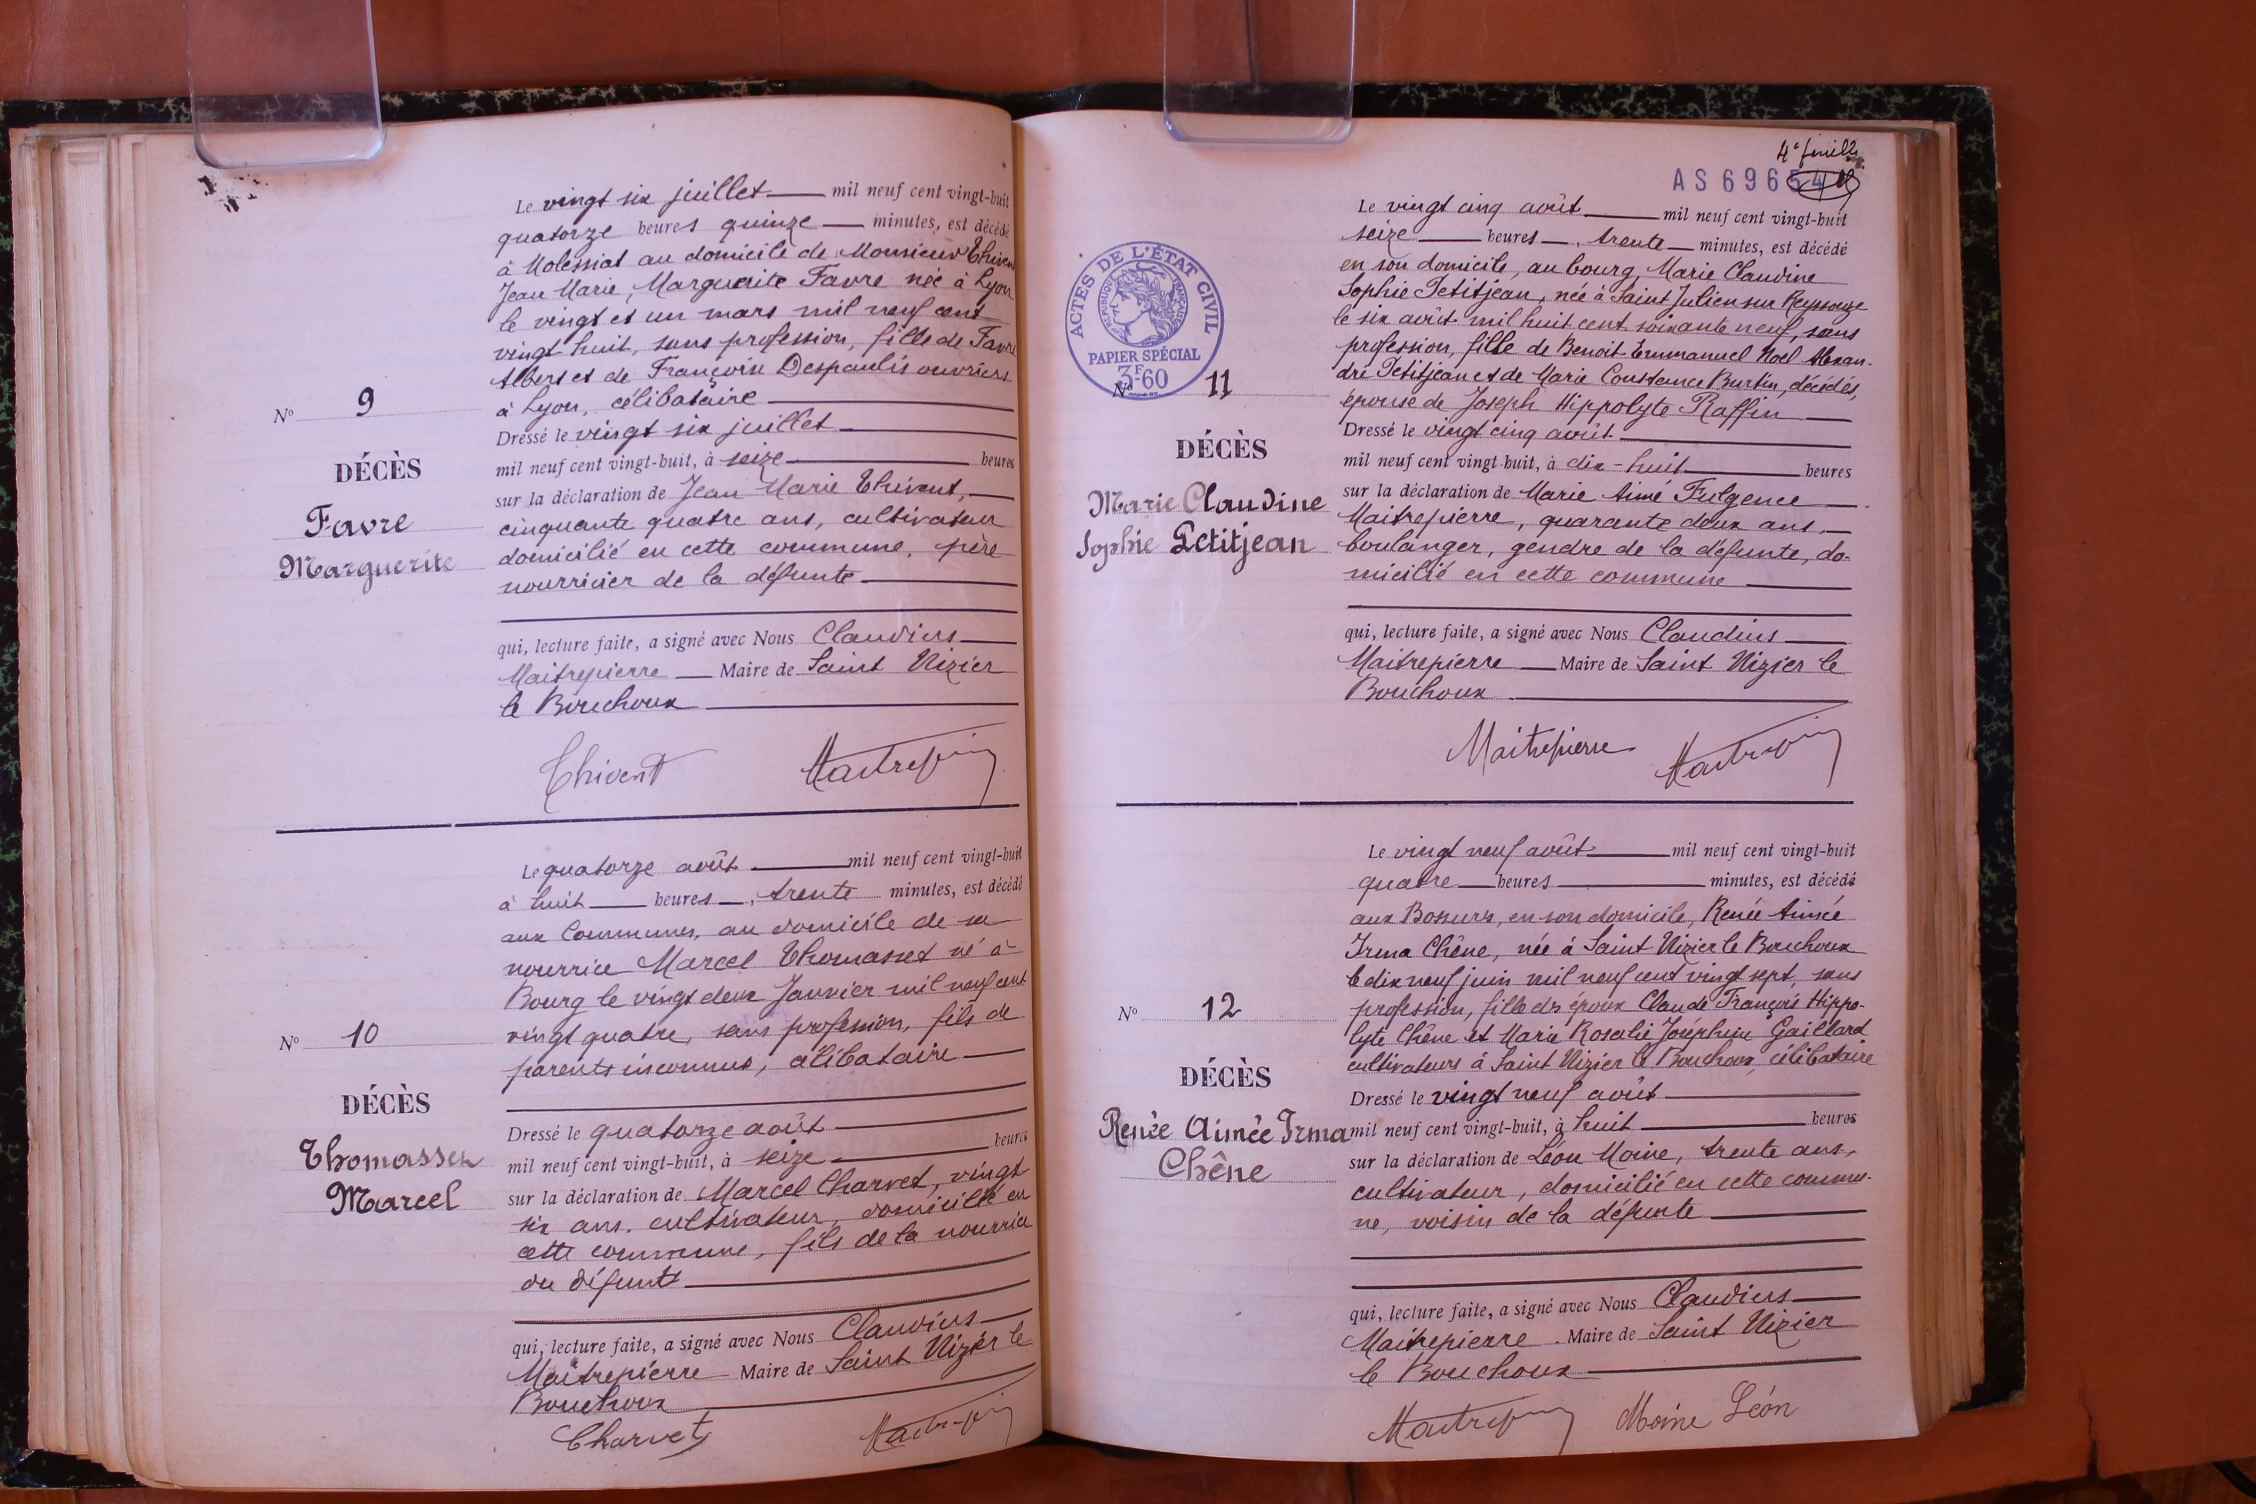 Le vingt six juillet mil neuf cent vingt-huit
quatorze heures quinze minutes, est décédé
à Molessiat au domicile de Monsieur Thivent
Jean Marie, Marguerite Favre née à Lyon
le vingt et un mars mil neuf cent
vingt huit, sans profession, fille de Favre
Albert et de Françoise Despaulis ouvriers
à Lyon, célibataire
N° 9
DÉCÈS
Favre
Marguerite
Dressé le vingt six juillet
mil neuf cent vingt-huit, à seize heures
sur la déclaration de Jean Marie Thivent,
cinquante quatre ans, cultivateur
domicilié en cette commune, père
nourricier de la défunte
qui, lecture faite, a signé avec Nous Claudius
Maitrepierre Maire de Saint Nizier
le Bouchoux
Thivent Maitrepierre
Le quatorze août mil neuf cent vingt-huit
à huit heures, trente minutes, est décédé
aux Communes, au domicile de sa
nourrice Marcel Thomasset né à
Bourg le vingt deux Janvier mil neuf cent
vingt quatre, sans profession, fils de
parents inconnus, célibataire
N° 10
DÉCÈS
Thomasset
Marcel
Dressé le quatorze août
mil neuf cent vingt-huit, à seize heures
sur la déclaration de Marcel Charvet, vingt
six ans, cultivateur, domicilié en
cette commune, fils de la nourrice
du défunt
qui, lecture faite, a signé avec Nous Claudius
Maitrepierre Maire de Saint Nizier le
Bouchoux
Charvet Maitrepierre
4e feuille
AS 69654
ACTES DE L'ÉTAT CIVIL
RÉPUBLIQUE FRANÇAISE
PAPIER SPÉCIAL
3F60
Le vingt cinq août mil neuf cent vingt-huit
seize heures, trente minutes, est décédé
en son domicile, au bourg, Marie Claudine
Sophie Petitjean, née à Saint Julien sur Reyssouze
le six août mil huit cent soixante neuf, sans
profession, fille de Benoit Emmanuel Noel Alexan-
dre Petitjean et de Marie Constance Burtin, décédés,
épouse de Joseph Hippolyte Raffin
N° 11
DÉCÈS
Marie Claudine
Sophie Petitjean
Dressé le vingt cinq août
mil neuf cent vingt-huit, à dix-huit heures
sur la déclaration de Marie Aimé Fulgence
Maitrepierre, quarante deux ans,
boulanger, gendre de la défunte, do-
micilié en cette commune
qui, lecture faite, a signé avec Nous Claudius
Maitrepierre Maire de Saint Nizier le
Bouchoux
Maitrepierre Maitrepierre
Le vingt neuf août mil neuf cent vingt-huit
quatre heures minutes, est décédé
aux Bossurs, en son domicile, Renée Aimée
Irma Chêne, née à Saint Nizier le Bouchoux
le dix neuf juin mil neuf cent vingt sept, sans
profession, fille des époux Claude François Hippo-
lyte Chêne et Marie Rosalie Joséphine Gaillard
cultivateurs à Saint Nizier le Bouchoux, célibataire
N° 12
DÉCÈS
Renée Aimée Irma
Chêne
Dressé le vingt neuf août
mil neuf cent vingt-huit, à huit heures
sur la déclaration de Léon Moine, trente ans,
cultivateur, domicilié en cette commu-
ne, voisin de la défunte
qui, lecture faite, a signé avec Nous Claudius
Maitrepierre Maire de Saint Nizier
le Bouchoux
Maitrepierre Moine Léon